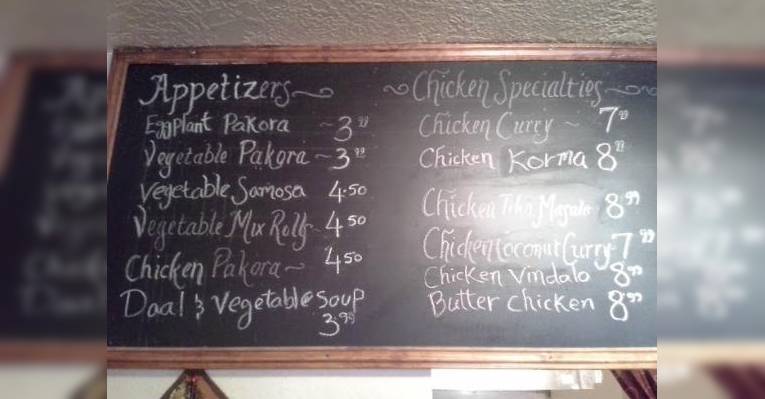 Appetizers
EggPlant Pakora ~ 3.99
Vegetable Pakora ~ 3.99
Vegetable Samosa 4.50
Vegetable Mix Rolls ~ 4.50
Chicken Pakora ~ 4.50
Daal & Vegetable Soup
3.99
~ Chicken Specialties ~
Chicken Curry ~ 7.99
Chicken Korma 8.99
Chicken Masala 8.99
Chicken Coconut Curry 7.99
Chicken Vindalo 8.99
Butter chicken 8.99